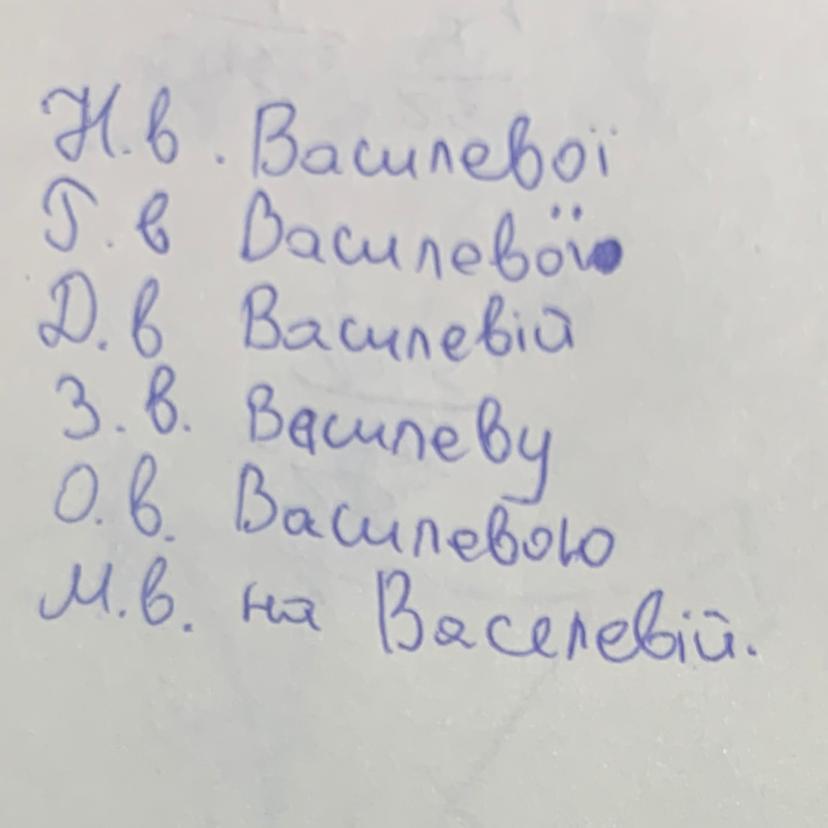 Н.в. Василевої
Г.в Василевої
Д.в Василевій
З.в. Василеву
О.в. Василевою
М.в. на Васелевій.